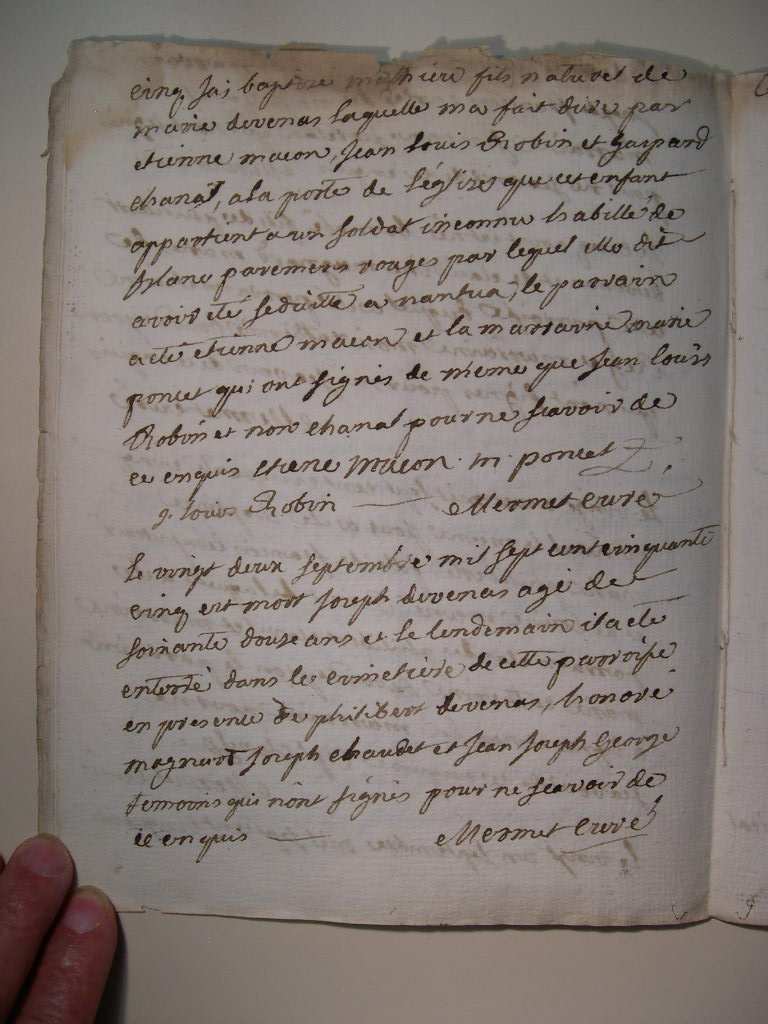 cinq jai baptise mathieu fils naturel de
marie devenas laquelle ma fait dire par
etienne macon, jean louis Robin et gaspard
chanal, a la porte de léglise que cet enfant
appartient a un soldat inconnu habillé de
blanc paremens rouges par lequel elle dit
avoir été seduitte a nantua, le parrain
a été etienne macon et la marraine marie
poncet qui ont signés de même que jean louis
Robin et non chanal pour ne scavoir de
ce enquis etiene macon m poncet
j. louis Robin Mermet curé
le vingt deux septembre mil sept cent cinquante
cinq est mort joseph devenas agé de
soixante douse ans et le lendemain il a été
enterré dans le cimetière de cette parroisse
en presence de philibert devenas, honoré
joseph chaudet et jean joseph george
temoins qui n'ont signés pour ne scavoir de
ce enquis Mermet curé